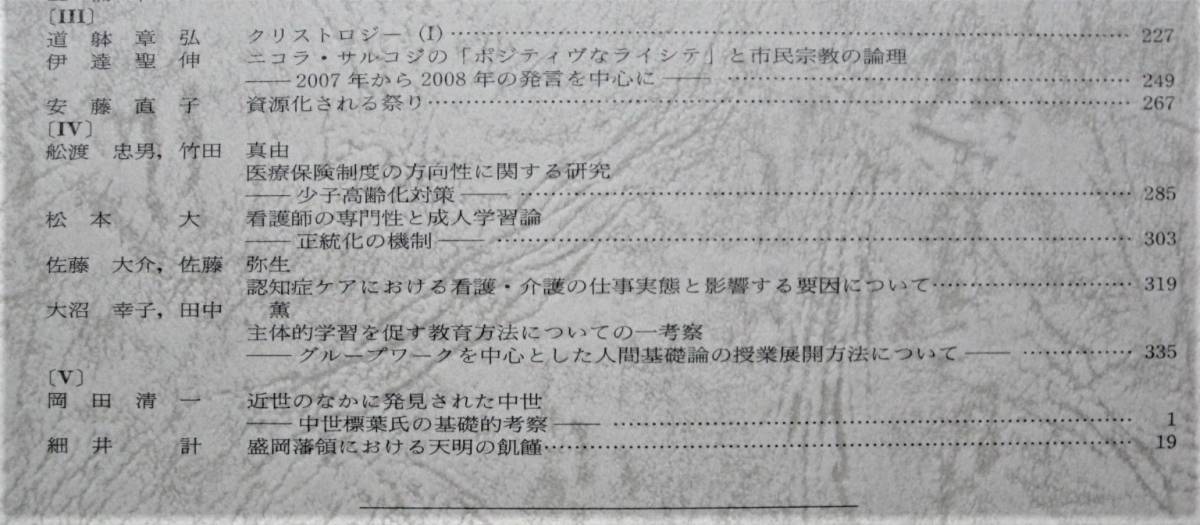 〔III〕
道躰章弘 クリストロジー(I)……………………………… 227
伊達聖伸 ニコラ・サルコジの「ポジティヴなライシテ」と市民宗教の論理
――2007年から2008年の発言を中心に―― ……………………………… 249
安藤直子 資源化される祭り……………………………… 267
〔IV〕
舩渡忠男，竹田真由
医療保険制度の方向性に関する研究
――少子高齢化対策―― ……………………………… 285
松本大 看護師の専門性と成人学習論
――正統化の機制―― ……………………………… 303
佐藤大介，佐藤弥生
認知症ケアにおける看護・介護の仕事実態と影響する要因について……………… 319
大沼幸子，田中薫
主体的学習を促す教育方法についての一考察
――グループワークを中心とした人間基礎論の授業展開方法について―― …………… 335
〔V〕
岡田清一 近世のなかに発見された中世
――中世標葉氏の基礎的考察―― ……………………………… 1
細井計 盛岡藩領における天明の飢饉……………………………… 19